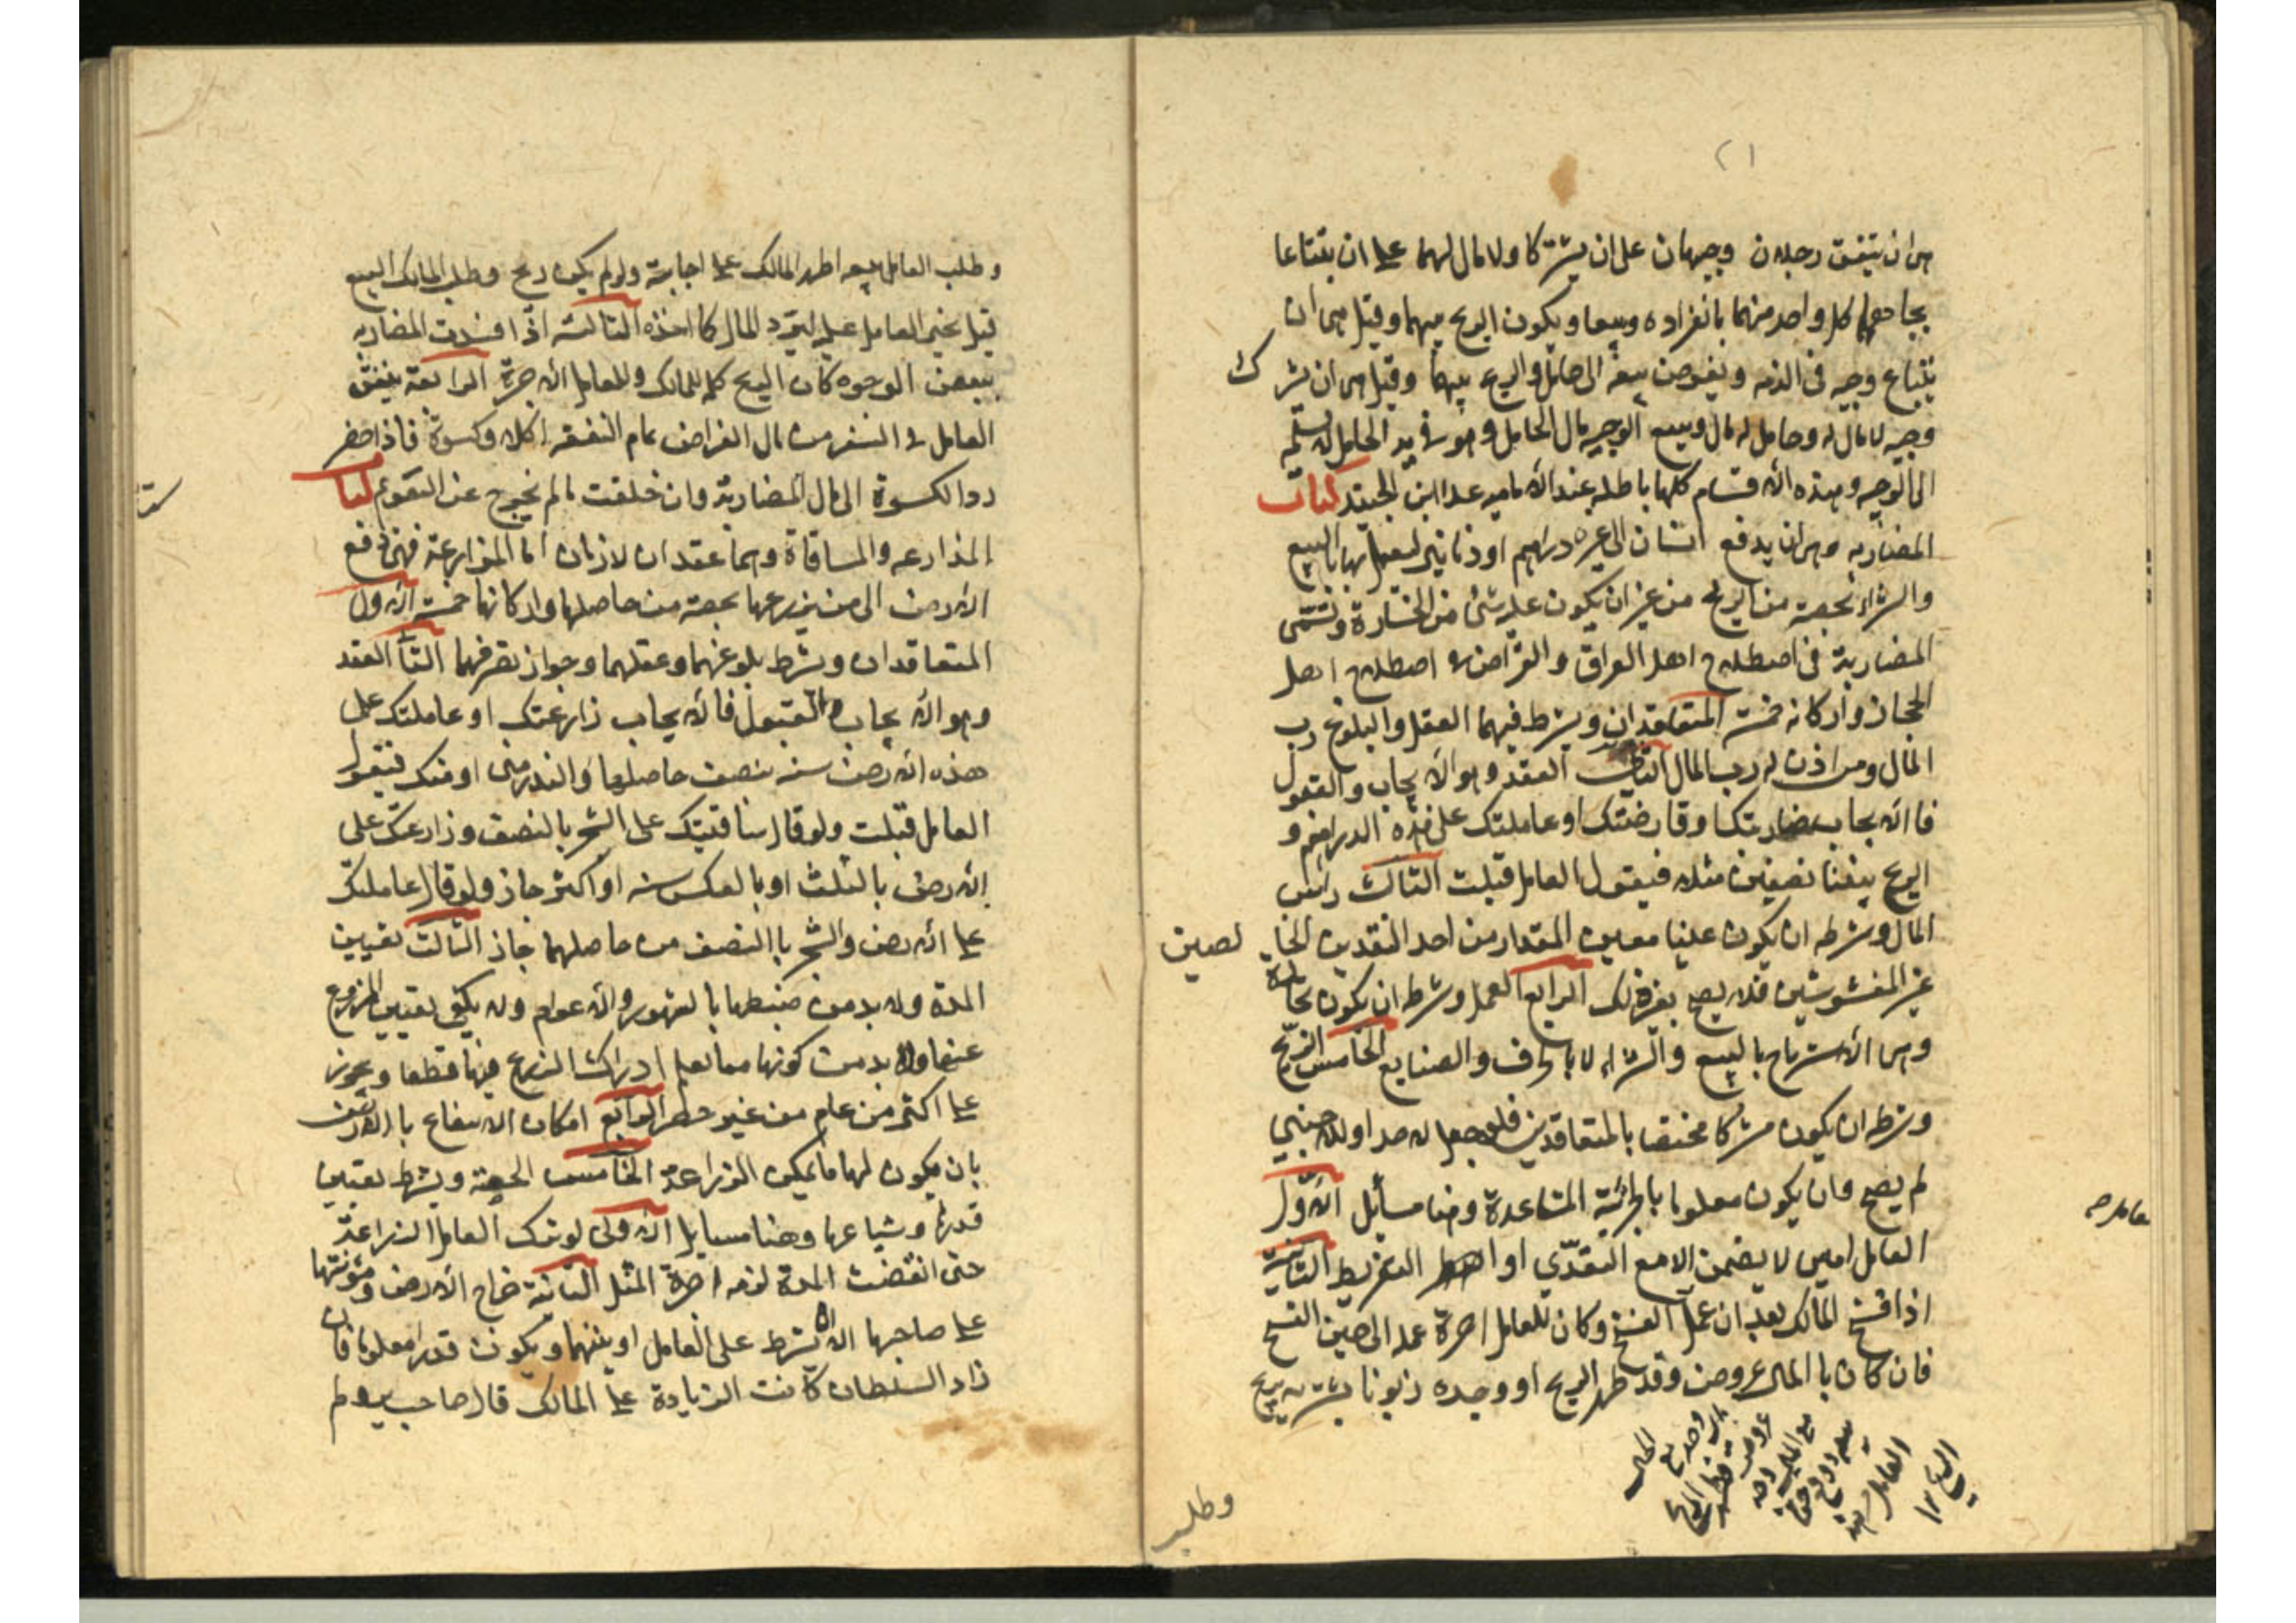 ٢١
هي ان يتفق رجلان وجيهان على ان يشتركا ولا مال لهما على ان يبتاعا
بجاههما كل واحد منهما بانفراده ويبيعا ويكون الربح بينهما وقيل هي ان
يبتاع وجيه في الذمه ويفوض بيعه الى خامل والربح بينهما وقيل هي ان يشرك
وجيه لا مال له وخامل له مال ويبيع الوجيه مال الخامل وهو في يد الخامل لا يسلمه
الى الوجيه وهذه الاقسام كلها باطله عند الاماميه عدا ابن الجنيد كتاب
المضاربه وهي ان يدفع انسان الى غيره دراهم او دنانير ليعمل بها بالبيع
والشراء بحصة من الربح من غير ان يكون عليه شئ من الخسارة وتسمى
المضاربة في اصطلاح اهل العراق والقراض في اصطلاح اهل
الحجاز واركانه خمسة المتعاقدان ويشرط فيهما العقل والبلوغ رب
المال ومن اذن له رب المال الثاني العقد وهو الايجاب والقبول
فالايجاب ضاربتك او قارضتك او عاملتك على هذه الدراهم و
الربح بيننا نصفين مثلا فيقول العامل قبلت الثالث راس
المال وشرطه ان يكون عينا معين المقدار من احد النقدين الخالصين
غير المغشوشين فلا يصح بغير ذلك الرابع العمل وشرطه ان يكون تجارة
وهي الاسترباح بالبيع والشراء لا بالحرف والصنايع الخامس الربح
وشرطه ان يكون مشتركا مختصا بالمتعاقدين فلو جعل لاحد او للاجنبي
لم يصح وان يكون معلوما بالجزئية المشاعة وهنا مسائل الاول
العامل امين لا يضمن الا مع التعدي او التفريط الثانية
اذا فسخ المالك بعد ان عمل انفسخ وكان للعامل اجرة عمله الى حين الفسخ
فان كان بالمال عروض وقد ظهر الربح او وجد زبونا يشتريه بربح
وطلب
وطلب العامل بيعه اجبر المالك على اجابته ولو لم يكن ربح وطلب المالك البيع
قيل يجبر العامل عليه ليرد المال كما اخذه الثالثه اذا فسدت المضاربه
ببعض الوجوه كان الربح كله للمالك وللعامل الاجرة الرابعة ينفق
العامل في السفر من مال القراض تمام النفقه اكلا وكسوة فاذا حضر
رد الكسوة الى مال المضاربة وان خلقت ما لم تخرج عن التقويم كتاب
المزارعه والمساقاة وهما عقدان لازمان اما المزارعة فهي دفع
الارض الى من يزرعها بحصة من حاصلها واركانها خمسة الاول
المتعاقدان ويشرط بلوغهما وعقلهما وجواز تصرفهما الثاني العقد
وهو الايجاب والقبول فالايجاب زارعتك او عاملتك على
هذه الارض سنه بنصف حاصلها والبذر مني او منك فيقول
العامل قبلت ولو قال ساقيتك على الشجر بالنصف وزارعتك على
الارض بالثلث او بالعكس سنه او اكثر جاز ولو قال عاملتك
على الارض والشجر بالنصف من حاصلهما جاز الثالث تعيين
المدة ولا بد من ضبطها بالشهور والاعوام ولا يكفي تعيين المزروع
عنها ولا بد من كونها مما يعلم ادراك الزرع فيها قطعا ويجوز
على اكثر من عام من غير حصر الرابع امكان الانتفاع بالارض
بان يكون لها ما يمكن الزراعة الخامس الحصة ويشرط تعيين
قدرها وشياعها وهنا مسايل الاولى لو ترك العامل الزراعة
حتى انقضت المدة لزمه اجرة المثل الثانية خراج الارض ومؤنتها
على صاحبها الا ان شرط على العامل او بينهما ويكون قدرا معلوما فان
زاد السلطان كانت الزيادة على المالك قال صاحب